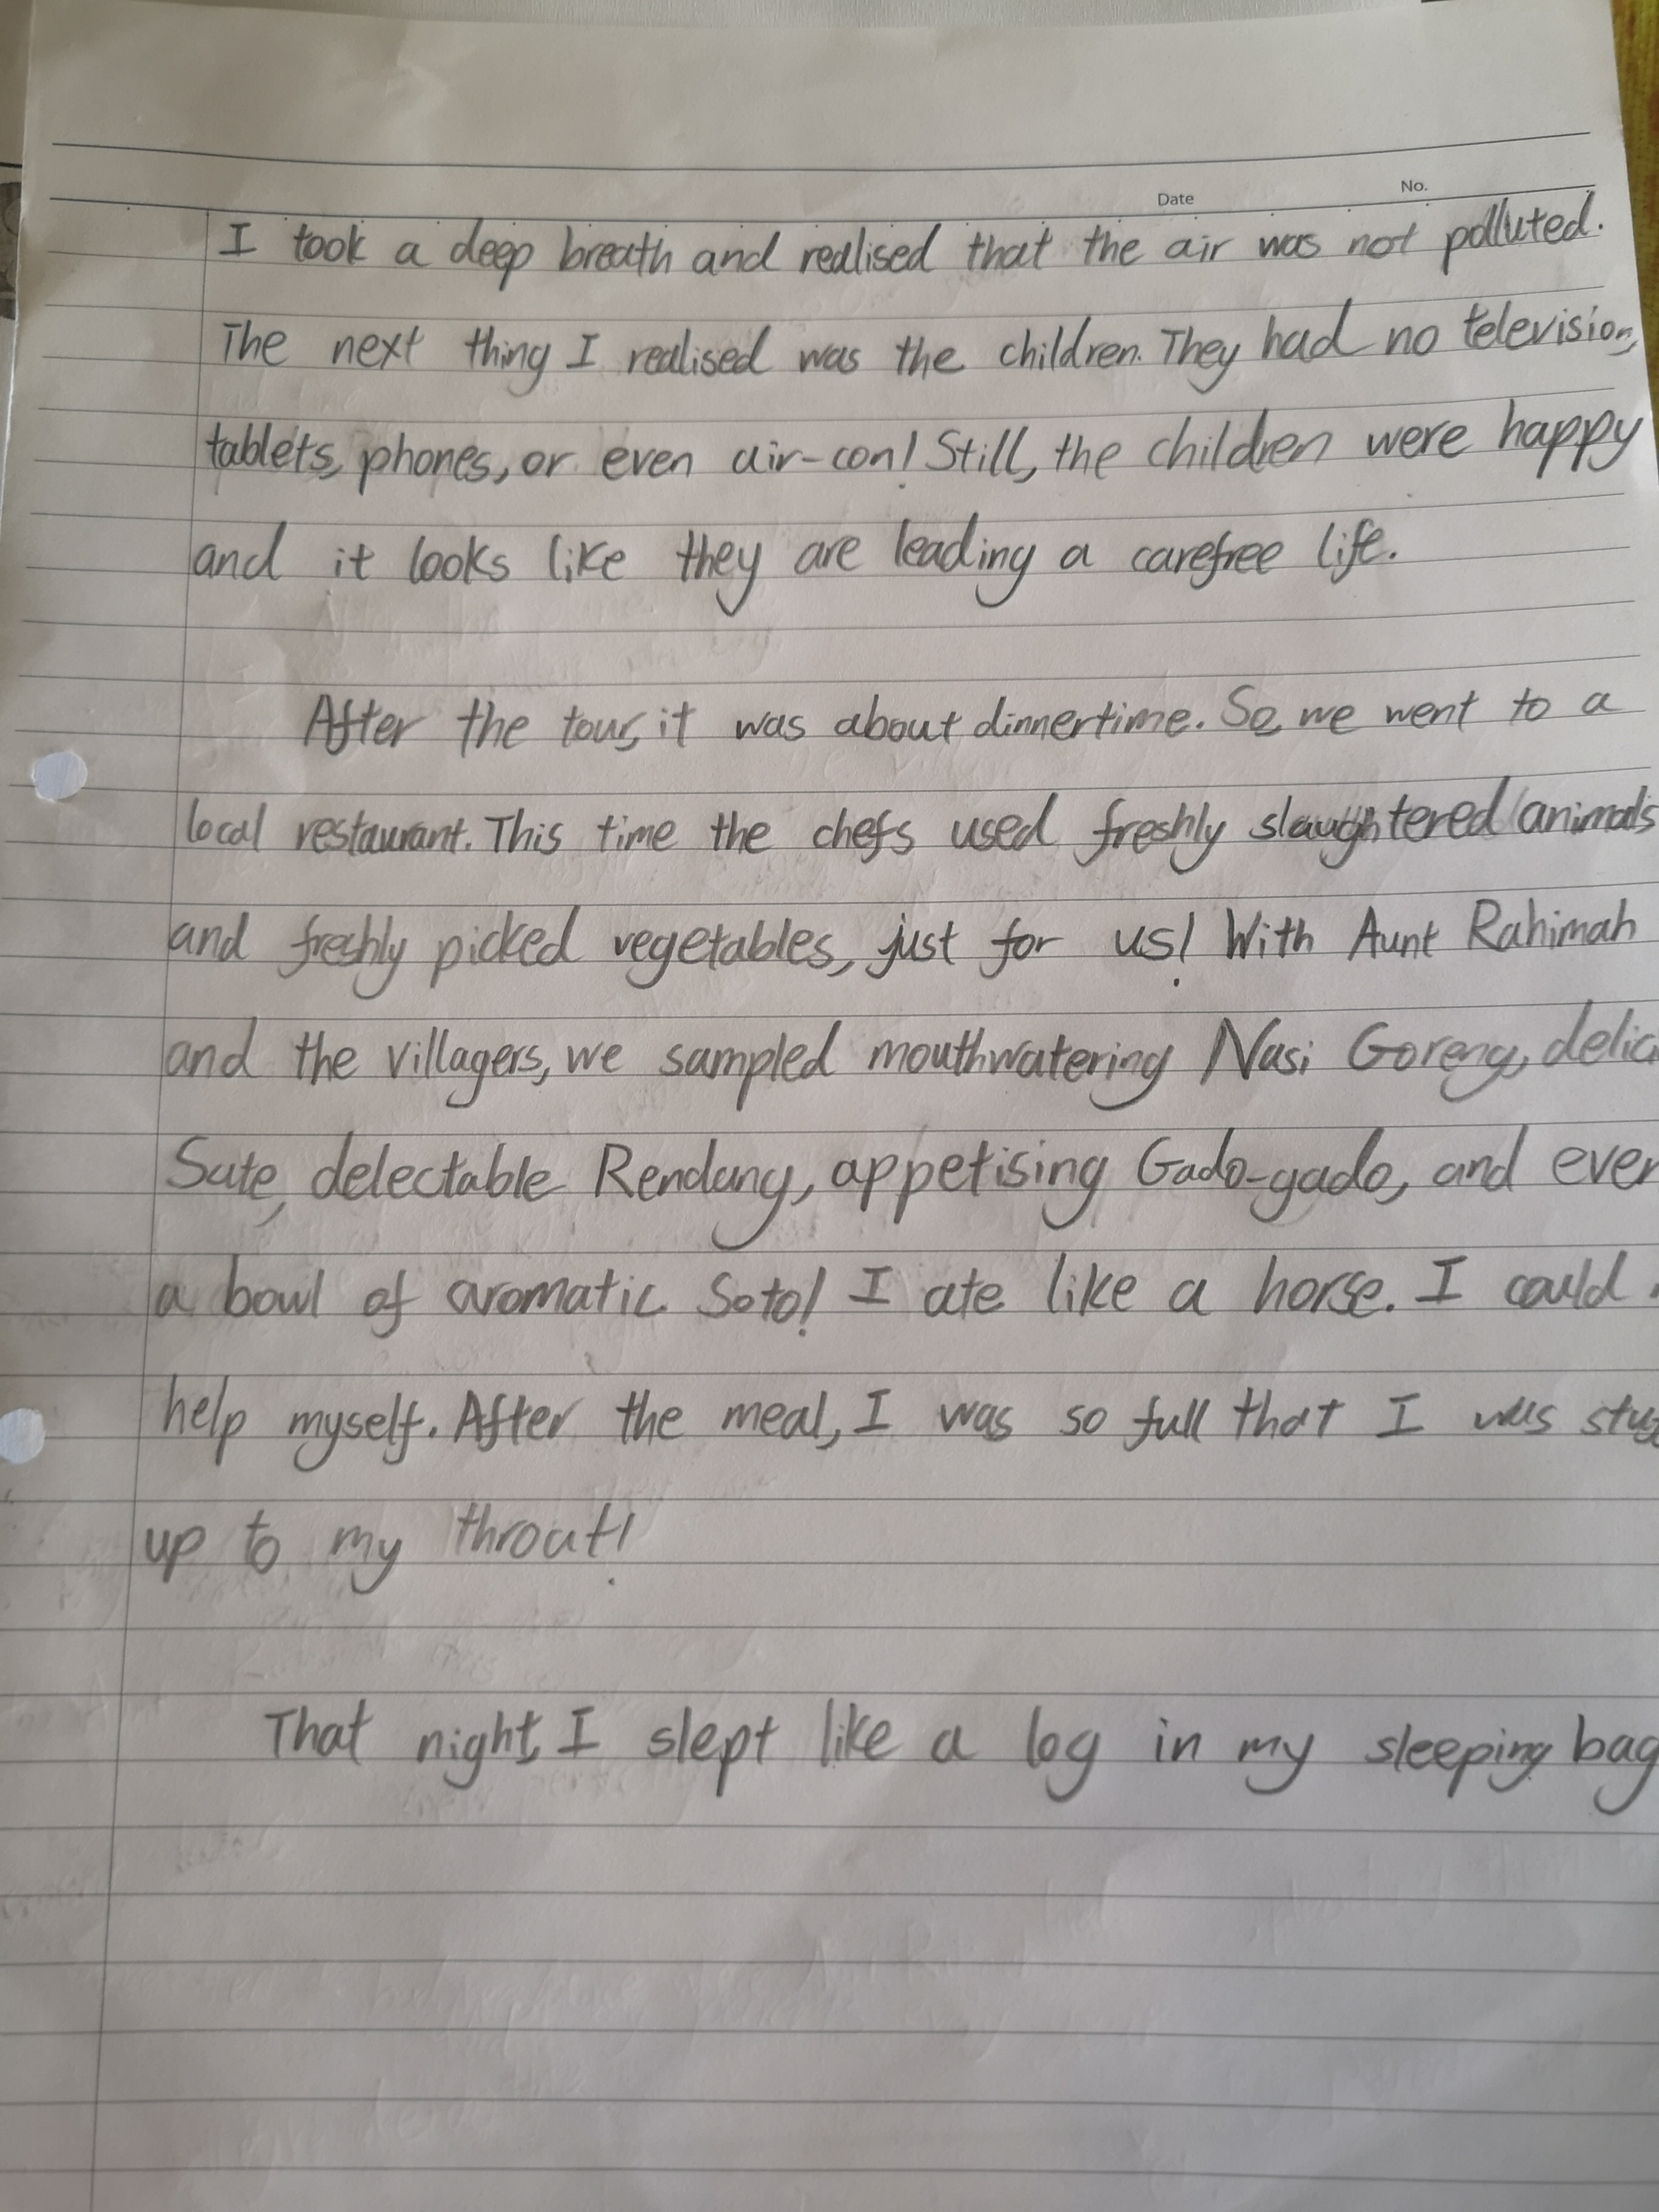 Date No.
I took a deep breath and realised that the air was not polluted.
The next thing I realised was the children. They had no television,
tablets, phones, or even air-con! Still, the children were happy
and it looks like they are leading a carefree life.
After the tour, it was about dinnertime. So, we went to a
local restaurant. This time the chefs used freshly slaughtered animals
and freshly picked vegetables, just for us! With Aunt Rahimah
and the villagers, we sampled mouthwatering Nasi Goreng,
Sate, delectable Rendang, appetising Gado-gado, and
a bowl of aromatic Soto! I ate like a horse. I could
help myself. After the meal, I was so full that I was
up to my throat!
That night, I slept like a log in my sleeping bag